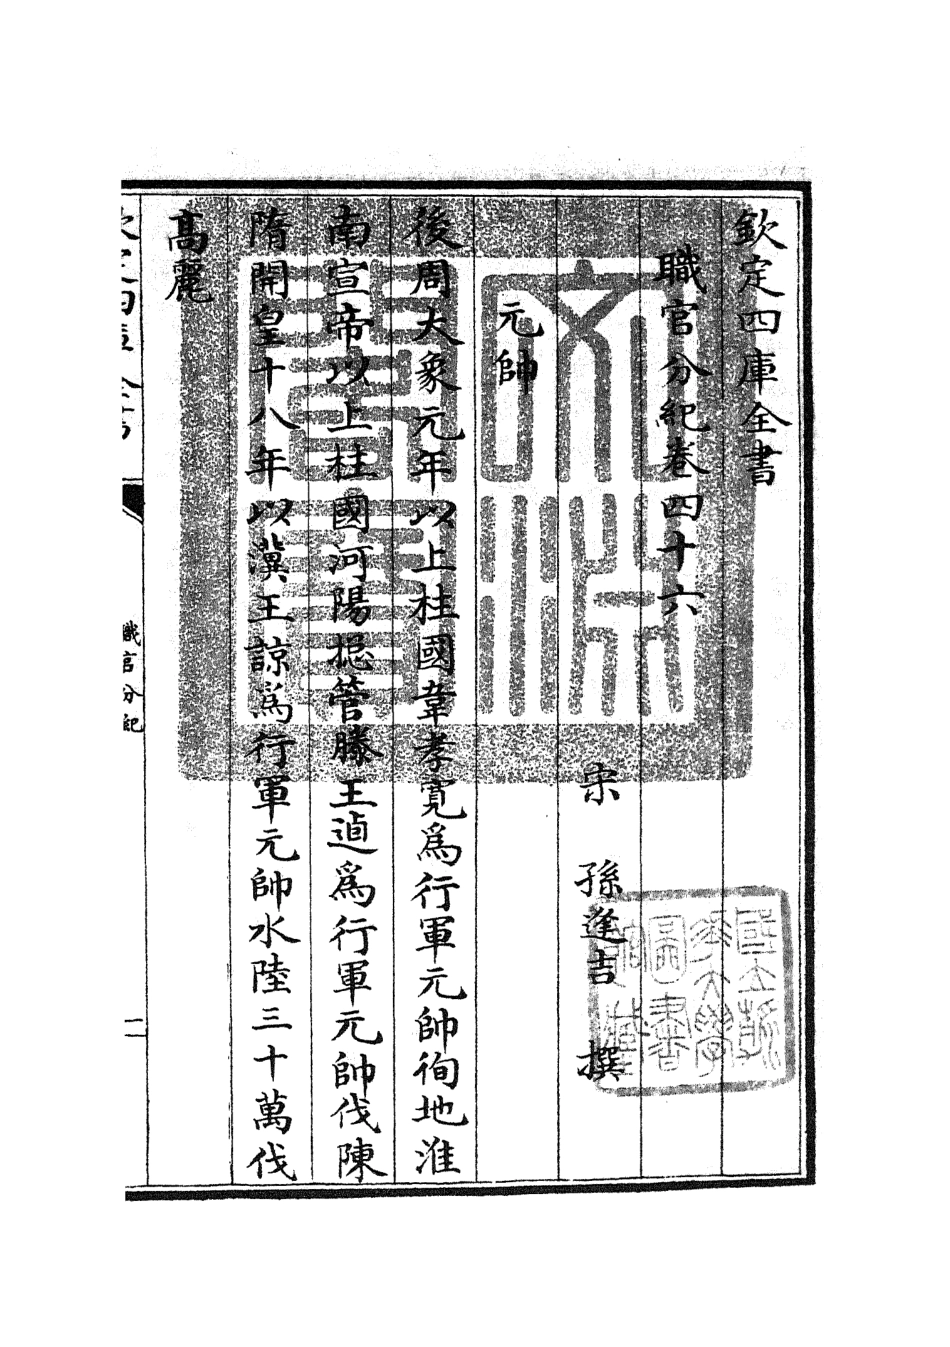 欽定四庫全書
職官分紀卷四十六
宋 孫逢吉 撰
元帥
後周大象元年以上柱國韋孝寬爲行軍元帥徇地淮
南宣帝以上柱國河陽摠管滕王逌爲行軍元帥伐陳
隋開皇十八年以漢王諒爲行軍元帥水陸三十萬伐
高麗
職官分紀
一